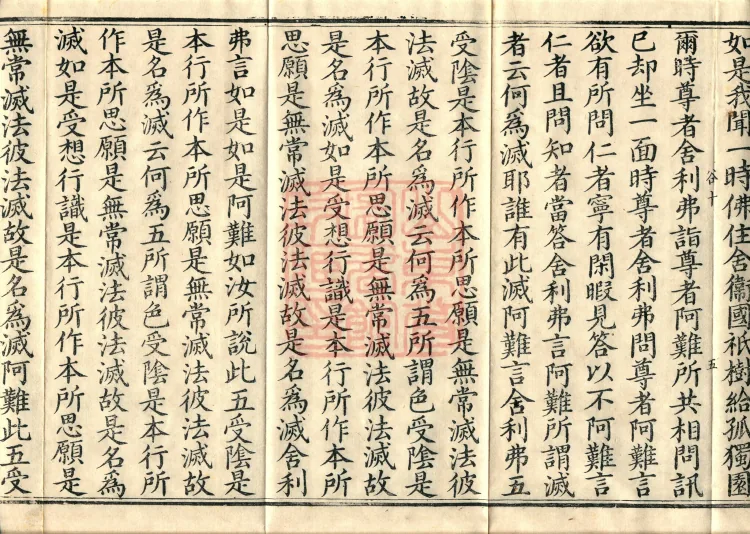 如是我聞一時佛住舍衞國祇樹給孤獨園
谷十
五
爾時尊者舍利弗詣尊者阿難所共相問訊
已却坐一面時尊者舍利弗問尊者阿難言
欲有所問仁者寧有閑暇見答以不阿難言
仁者且問知者當答舍利弗言阿難所謂滅
者云何爲滅耶誰有此滅阿難言舍利弗五
受陰是本行所作本所思願是無常滅法彼
法滅故是名爲滅云何爲五所謂色受陰是
本行所作本所思願是無常滅法彼法滅故
是名爲滅如是受想行識是本行所作本所
思願是無常滅法彼法滅故是名爲滅舍利
弗言如是如是阿難如汝所說此五受陰是
本行所作本所思願是無常滅法彼法滅故
是名爲滅云何爲五所謂色受陰是本行所
作本所思願是無常滅法彼法滅故是名爲
滅如是受想行識是本行所作本所思願是
無常滅法彼法滅故是名爲滅阿難此五受